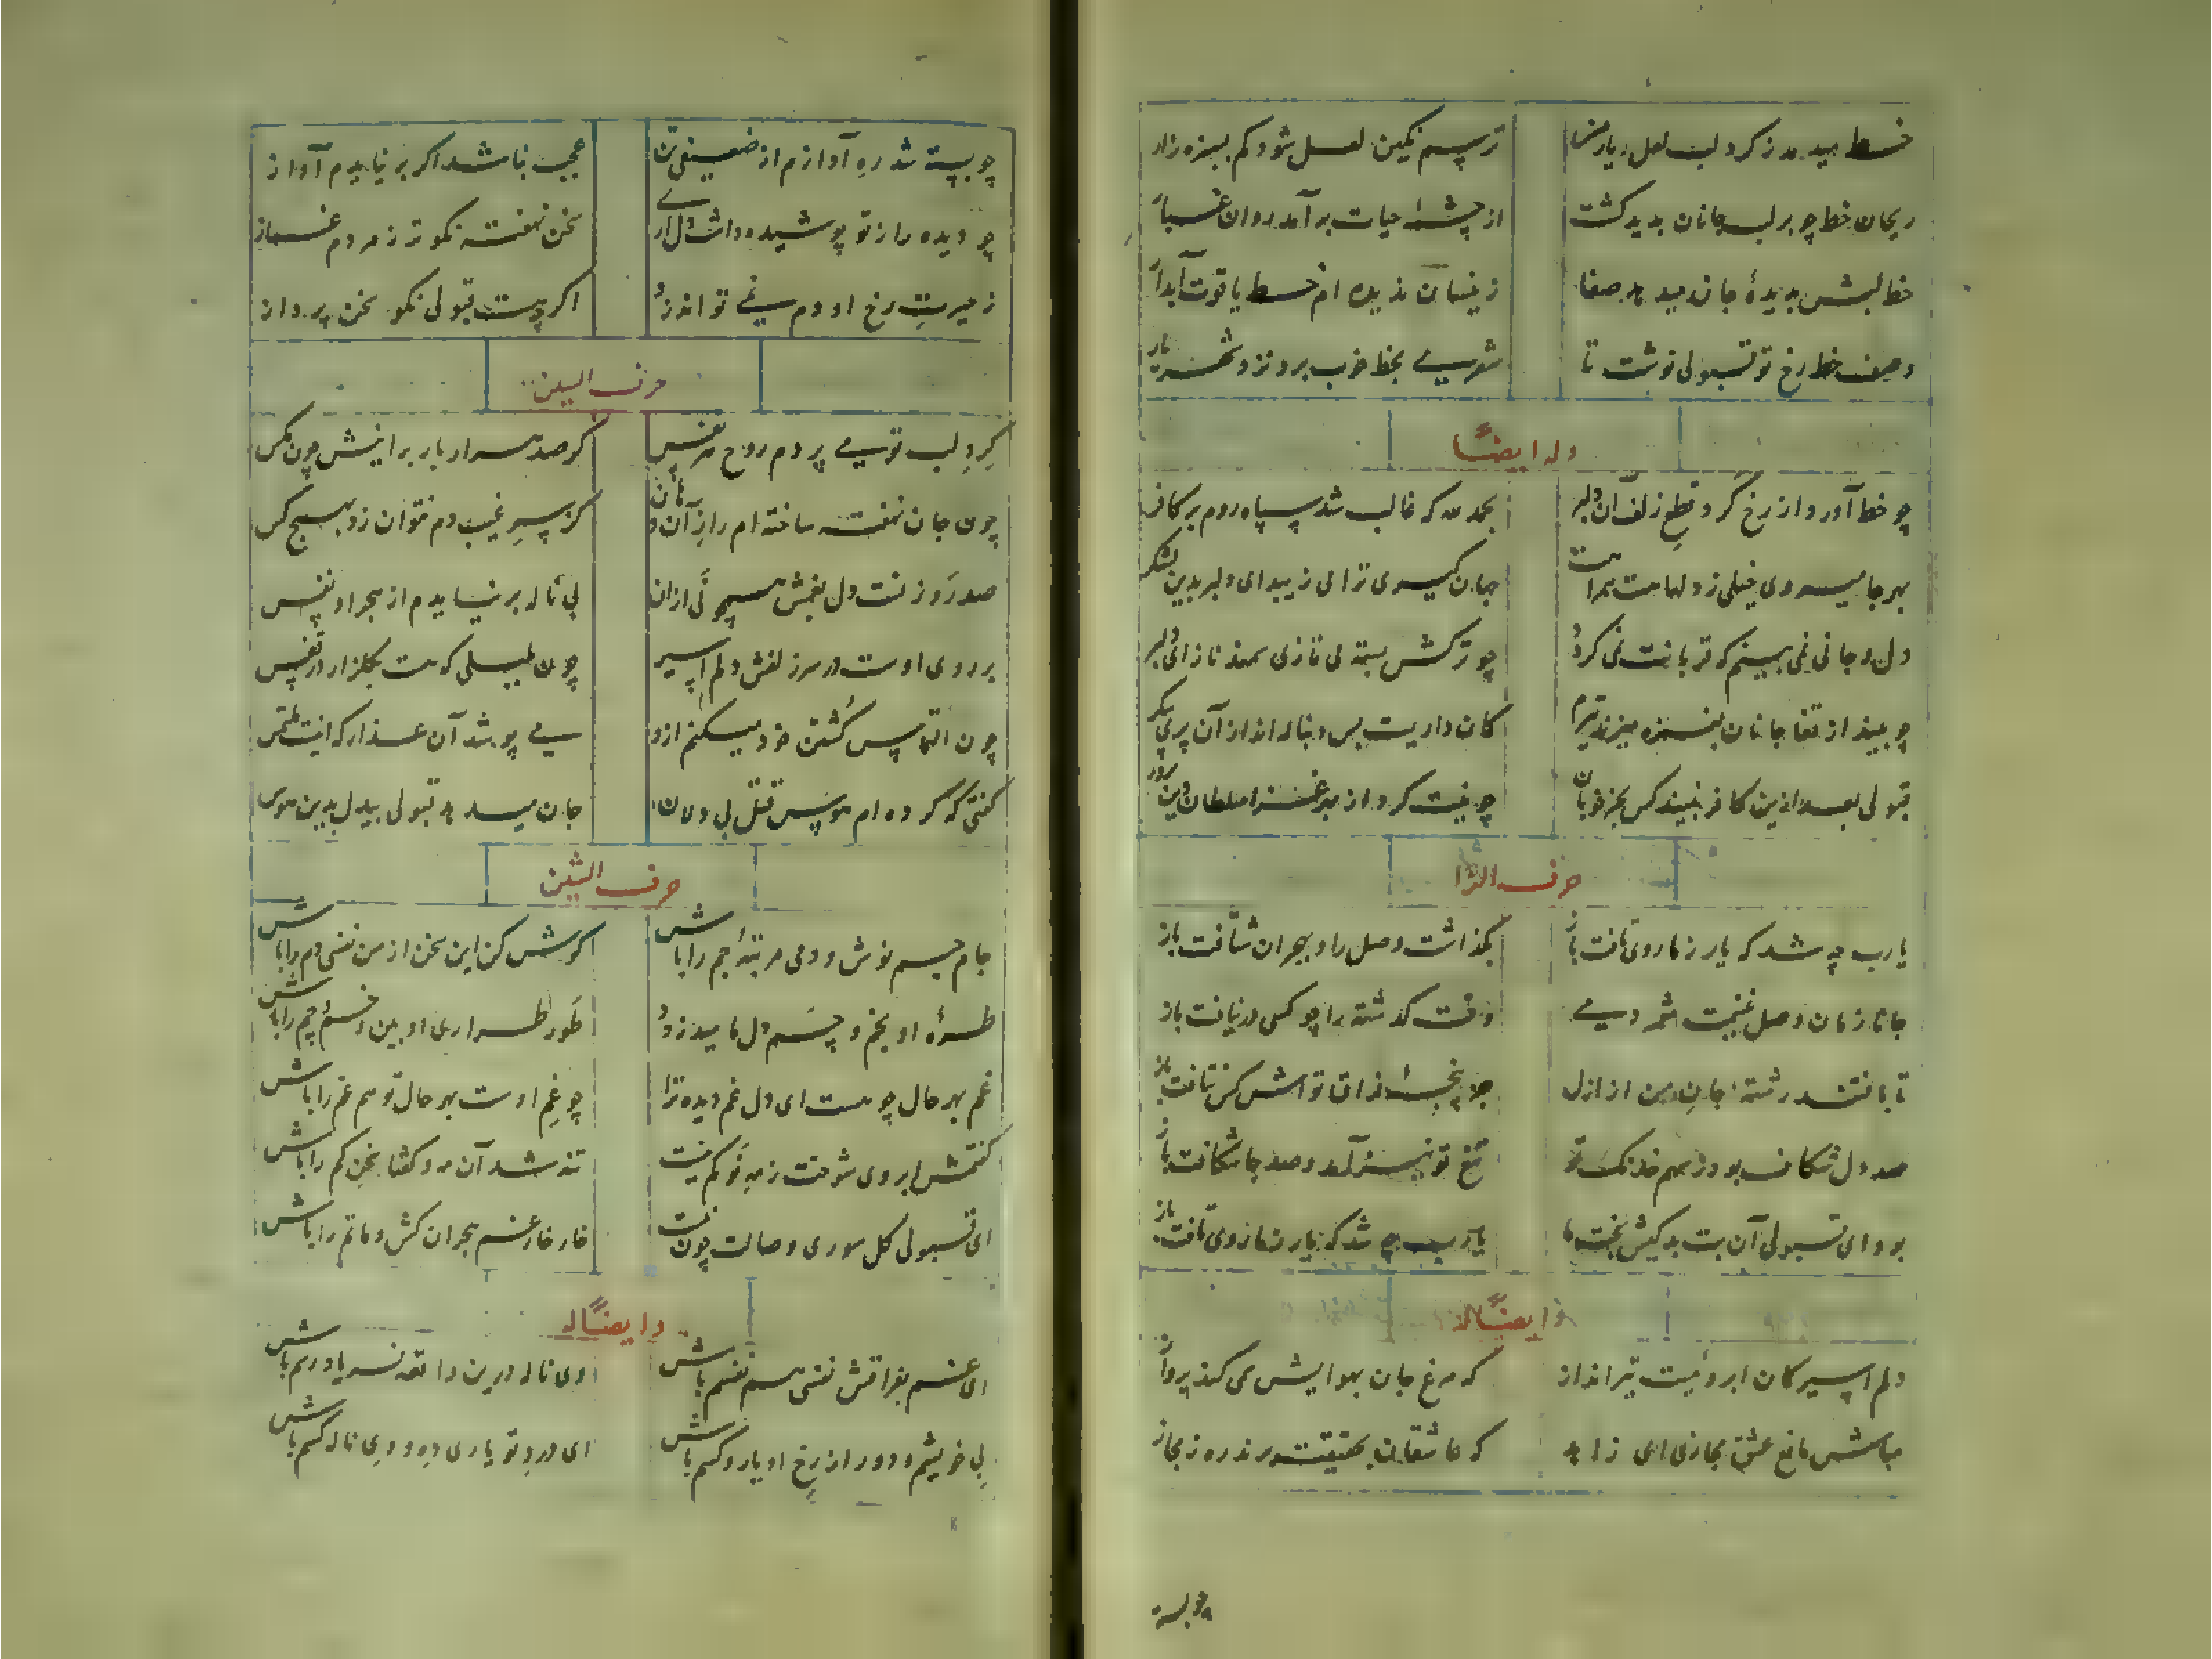 خط میدمد ز کرد لب لعل یار من ترسم نکین لعل شود کم بسبزه زار
ریحان خط چو بر لب جانان بدید کشت از چشمهٔ حیات برآمد روان غبار
خط لبش بدیدهٔ جان میدهد صفا زینسان ندیده ام خط یاقوت آبدار
وصف خط رخ تو قبولی نوشت تا شعرش بخط خوب برد نزد شهریار
وله ایضًا
چو خط آورد از رخ کرد قطع زلف آن دلبر بحمد الله که غالب شد سپاه روم بر کافر
بهر جا میروی خیلی ز دلها هست همراهت جهان کیسوی ترا می زیبد ای دلبر بدین لشکر
دل و جانی نمی بینم که قربانت نمی کردد چو ترکش بسته می تازی سمند ناز ای دلبر
چو بیند از قفا جانان بغمزه میزند تیرم کمان داریست بس دنباله انداز آن پری پیکر
قبولی بعد ازین کافر نبیند کس بجز خوبان چو نیت کرد از بهر غزا سلطان دین پرور
حرف الزا
یارب چه شد که یار ز ما روی تافت باز بگذاشت وصل راه بهجران شتافت باز
جانا زمان وصل غنیمت شمر دمی وقت گذشته را چو کسی درنیافت باز
تا بافتند رشتهٔ جان من از ازل جز پنجهٔ فراق تو اش کس نتافت باز
صد دل شکاف بود ز سهم خدنک تو تیغ تو نیز آمد و صد جا شکافت باز
بود ای قبولی آن بت بدکیش بخت ما یارب چه شد که یار ز ما روی تافت باز
وایضًا له
دلم اسیر کمان ابروئیست تیر انداز که مرغ جان بهوایش می کند پرواز
مباش مانع عشق مجازی ای زاهد که عاشقان بحقیقت برند ره ز مجاز
چو بسته
چو بسته شد ره آوازم از ضعیفی تن عجب نباشد اکر بر نیایدم آواز
چو دیده راز تو پوشیده داشت ای دل زار سخن نهفته نکوتر ز مردم غماز
ز حیرت رخ او دم نمی تواند زد اکرچه هست قبولی نکو سخن پرداز
حرف السین
کرد لب تو می پردم روح هر نفس کو صد هزار بار برانیش چون مکس
چون جان نهفته ساخته ام راز آن دهان کز سر غیب دم نتوان زد بهیچ کس
صد روزنست دل بغمش همچو نی ازان بی ناله بر نیایدم از هجر او نفس
بر روی اوست در سر زلفش دلم اسیر چون بلبلی که هست بکلزار در قفس
چون التماس کُشتن خود میکنم ازو می پوشد آن عذار که اینست ملتمس
کفتی که کرده ام هوس قتل بی دلان جان میدهد قبولی بیدل بدین هوس
حرف الشین
جام جم نوش و دمی مرتبهٔ جم را باش کوش کن این سخن از من نفسی دم را باش
طرهٔ او بخم و چشم دل ما میدزدد طور طراری او بین و خم چم را باش
غم بهر حال چو هست ای دل غم دیده ترا چو غم اوست بهر حال تو هم غم را باش
کفتمش ابروی شوخت ز مه نو کم نیست تند شد آن مه و کفتا سخن کم را باش
ای قبولی کل سوری وصالت چون نیست خار خار غم هجران کش و ماتم را باش
وایضًا له
ای غم بفراقش نفسی هم نفسم باش وی ناله درین واقعه فریاد رسم باش
بی خویشم و دور از رخ او یار و کسم باش ای درد تو یاری ده و وی ناله کسم باش